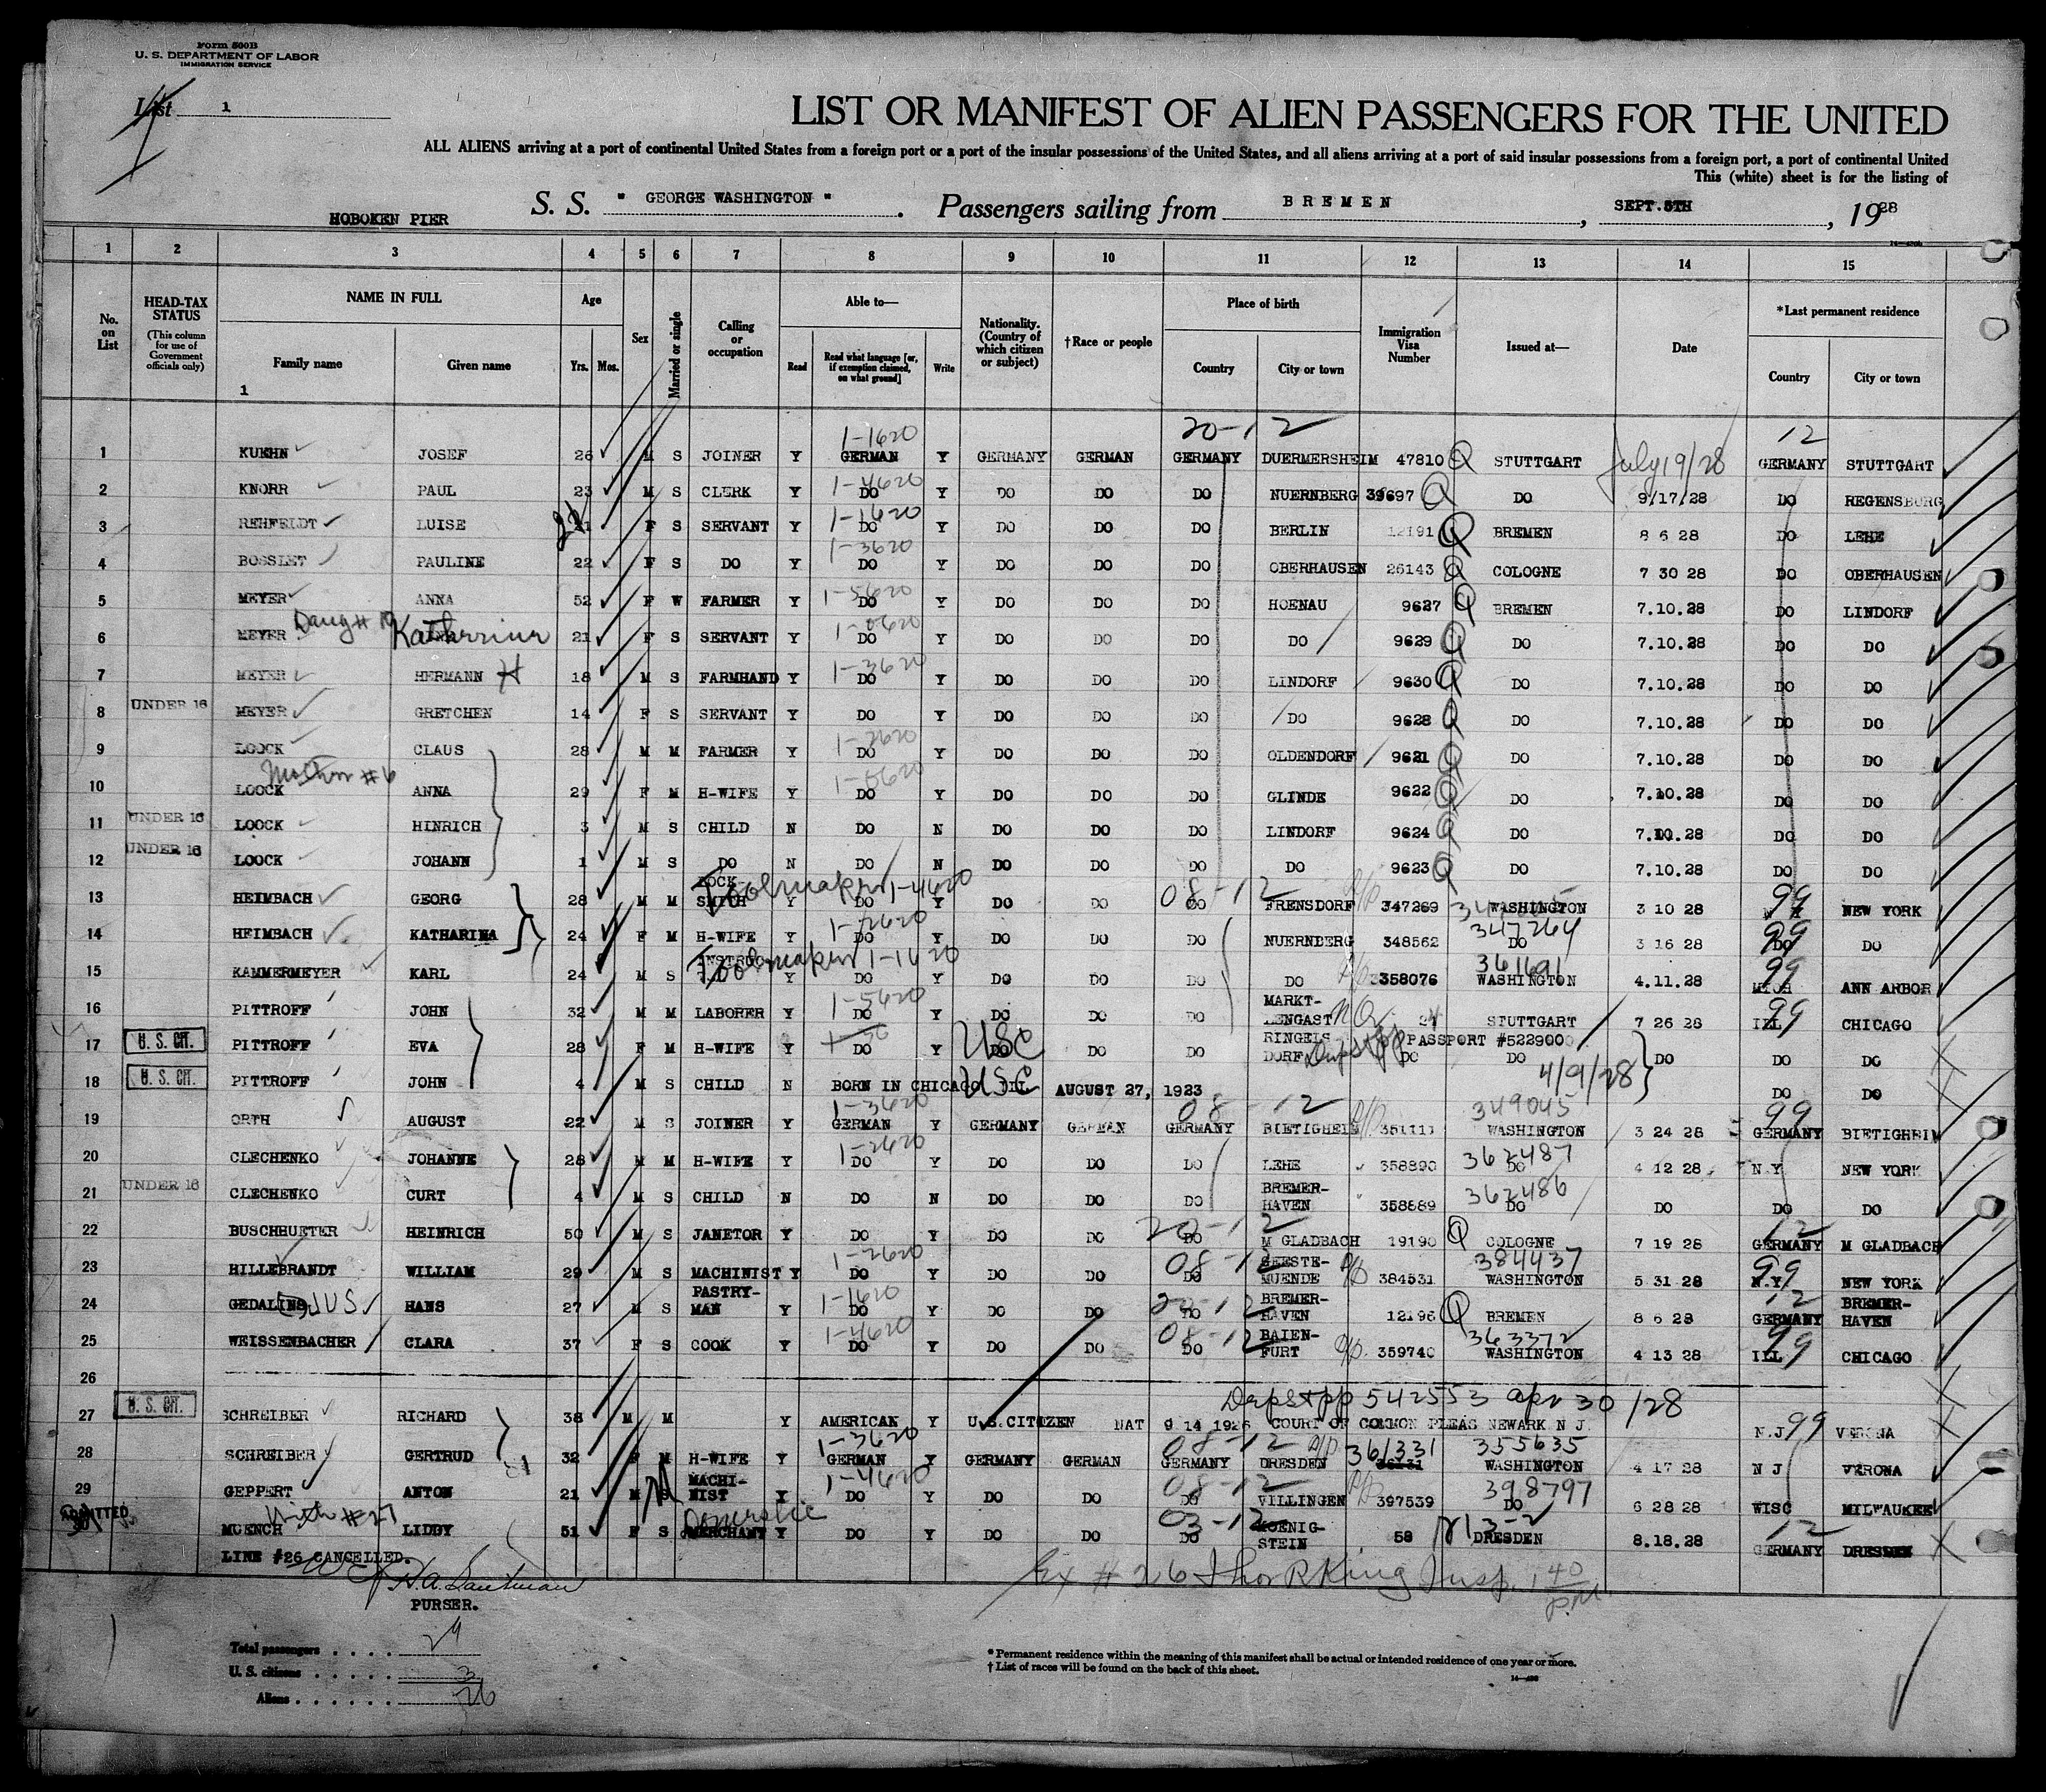 Form 500B
U. S. DEPARTMENT OF LABOR
IMMIGRATION SERVICE
List 1
LIST OR MANIFEST OF ALIEN PASSENGERS FOR THE UNITED
ALL ALIENS arriving at a port of continental United States from a foreign port or a port of the insular possessions of the United States, and all aliens arriving at a port of said insular possessions from a foreign port, a port of continental United
This (white) sheet is for the listing of
HOBOKEN PIER S. S. " GEORGE WASHINGTON ". Passengers sailing from BREMEN, SEPT. 5TH, 1928
1 2 3 4 5 6 7 8 9 10 11 12 13 14 15
No. on List HEAD-TAX STATUS (This column for use of Government officials only) NAME IN FULL Family name Given name Age Yrs. Mos. Sex Married or single Calling or occupation Able to— Read Read what language [or, if exemption claimed, on what ground] Write Nationality. (Country of which citizen or subject) †Race or people Place of birth Country City or town Immigration Visa Number Issued at— Date *Last permanent residence Country City or town
1
1-1620 20-12 12
1 KUEHN JOSEF 26 M S JOINER Y GERMAN Y GERMANY GERMAN GERMANY DUERMERSHEIM 47810 Q STUTTGART July 19/28 GERMANY STUTTGART
2 KNORR PAUL 23 M S CLERK Y 1-4620 DO Y DO DO DO NUERNBERG 39697 Q DO 9/17/28 DO REGENSBURG
3 REHFELDT LUISE 21 F S SERVANT Y 1-1620 DO Y DO DO DO BERLIN 12191 Q BREMEN 8 6 28 DO LEHE
4 BOSSLET PAULINE 22 F S DO Y 1-3620 DO Y DO DO DO OBERHAUSEN 26143 Q COLOGNE 7 30 28 DO OBERHAUSEN
5 MEYER ANNA 52 F W FARMER Y 1-5620 DO Y DO DO DO HOENAU 9627 Q BREMEN 7.10.28 DO LINDORF
6 MEYER Daug # 10 Katherrine 21 F S SERVANT Y DO Y DO DO DO DO 9629 Q DO 7.10.28 DO DO
7 MEYER HERMANN H 18 M S FARMHAND Y 1-3620 DO Y DO DO DO LINDORF 9630 Q DO 7.10.28 DO DO
8 UNDER 16 MEYER GRETCHEN 14 F S SERVANT Y DO Y DO DO DO DO 9628 Q DO 7.10.28 DO DO
9 LOOCK CLAUS 28 M M FARMER Y 1-2620 DO Y DO DO DO OLDENDORF 9621 Q DO 7.10.28 DO DO
10 LOOCK Mother #6 ANNA 29 F M H-WIFE Y DO Y DO DO DO GLINDE 9622 Q DO 7.10.28 DO DO
11 UNDER 16 LOOCK HINRICH 3 M S CHILD N DO N DO DO DO LINDORF 9624 Q DO 7.10.28 DO DO
12 UNDER 16 LOOCK JOHANN 1 M S DO N DO N DO DO DO DO 9623 Q DO 7.10.28 DO DO
13 HEIMBACH GEORG 28 M M LOCK-SMITH Toolmaker Y 1-4620 DO Y DO DO 08-12 DO FRENSDORF R/P 347269 WASHINGTON 3 10 28 99 NEW YORK
14 HEIMBACH KATHARINA 24 F M H-WIFE Y 1-2620 DO Y DO DO DO NUERNBERG 348562 347264 DO 3 16 28 99 DO DO
15 KAMMERMEYER KARL 24 M S Toolmaker Y 1-1620 DO Y DO DO DO DO R/P 358076 361691 WASHINGTON 4.11.28 99 MICH ANN ARBOR
16 PITTROFF JOHN 32 M M LABORER Y 1-5620 DO Y DO DO DO MARKT-LENGAST NQ 24 STUTTGART 7 26 28 99 ILL CHICAGO
17 U. S. CIT. PITTROFF EVA 28 F M H-WIFE Y DO Y DO USC DO DO RINGELS DORF Depstpp PASSPORT #522900 DO DO DO DO DO
18 U. S. CIT. PITTROFF JOHN 4 M S CHILD N BORN IN CHICAGO ILL USC AUGUST 27, 1923 4/9/28 DO DO
19 ORTH AUGUST 22 M S JOINER Y 1-3620 GERMAN Y GERMANY GERMAN 08-12 GERMANY BIETIGHEIM R/P 351111 349045 WASHINGTON 3 24 28 99 GERMANY BIETIGHEIM
20 CLECHENKO JOHANNE 28 M M H-WIFE Y 1-2620 DO Y DO DO DO LEHE 358890 362487 DO 4 12 28 N.Y. NEW YORK
21 UNDER 16 CLECHENKO CURT 4 M S CHILD N DO N DO DO DO BREMER-HAVEN 358889 362486 DO DO DO DO
22 BUSCHHUETER HEINRICH 50 M S JANETOR Y DO Y DO DO 20-12 DO M GLADBACH 19190 Q COLOGNE 7 19 28 12 GERMANY M GLADBACH
23 HILLEBRANDT WILLIAM 29 M S MACHINIST Y 1-2620 DO Y DO DO 08-12 DO GEESTE-MUENDE R/P 384531 384437 WASHINGTON 5 31 28 99 N.Y. NEW YORK
24 GEDALIUS IUS HANS 27 M S PASTRY-MAN Y 1-1620 DO Y DO DO 20-12 DO BREMER-HAVEN 12196 Q BREMEN 8 6 28 12 GERMANY BREMER-HAVEN
25 WEISSENBACHER CLARA 37 F S COOK Y 1-4620 DO Y DO DO 08-12 DO BAIEN-FURT R/P 359740 363372 WASHINGTON 4 13 28 99 ILL CHICAGO
26
Depstpp 542553 Apr 30/28
27 U. S. CIT. SCHREIBER RICHARD 38 M M Y AMERICAN Y U.S. CITIZEN NAT 9 14 1926 COURT OF COMMON PLEAS NEWARK N J N.J 99 VERONA
28 SCHREIBER GERTRUD 32 F M H-WIFE Y 1-3620 GERMAN Y GERMANY GERMAN 08-12 GERMANY DRESDEN R/P 361331 355635 WASHINGTON 4 17 28 N J VERONA
29 GEPPERT ANTON 21 M S M MACHI-NIST Y 1-4620 DO Y DO DO 08-12 DO VILLINGEN R/P 397539 398797 DO 6 28 28 WISC MILWAUKEE
ADMITTED 30 MUENCH With #27 LIDDY 51 F S MERCHANT Domestic Y DO Y DO DO 03-12 DO KOENIG-STEIN 58 DRESDEN 8.18.28 12 GERMANY DRESDEN
LINE #26 CANCELLED.
Ex # 26 Thos R King Insp. 1 40 P.M.
PURSER.
Total passengers . . . . 29
U. S. citizens . . . . . 3
Aliens . . . . . . 26
* Permanent residence within the meaning of this manifest shall be actual or intended residence of one year or more.
† List of races will be found on the back of this sheet.